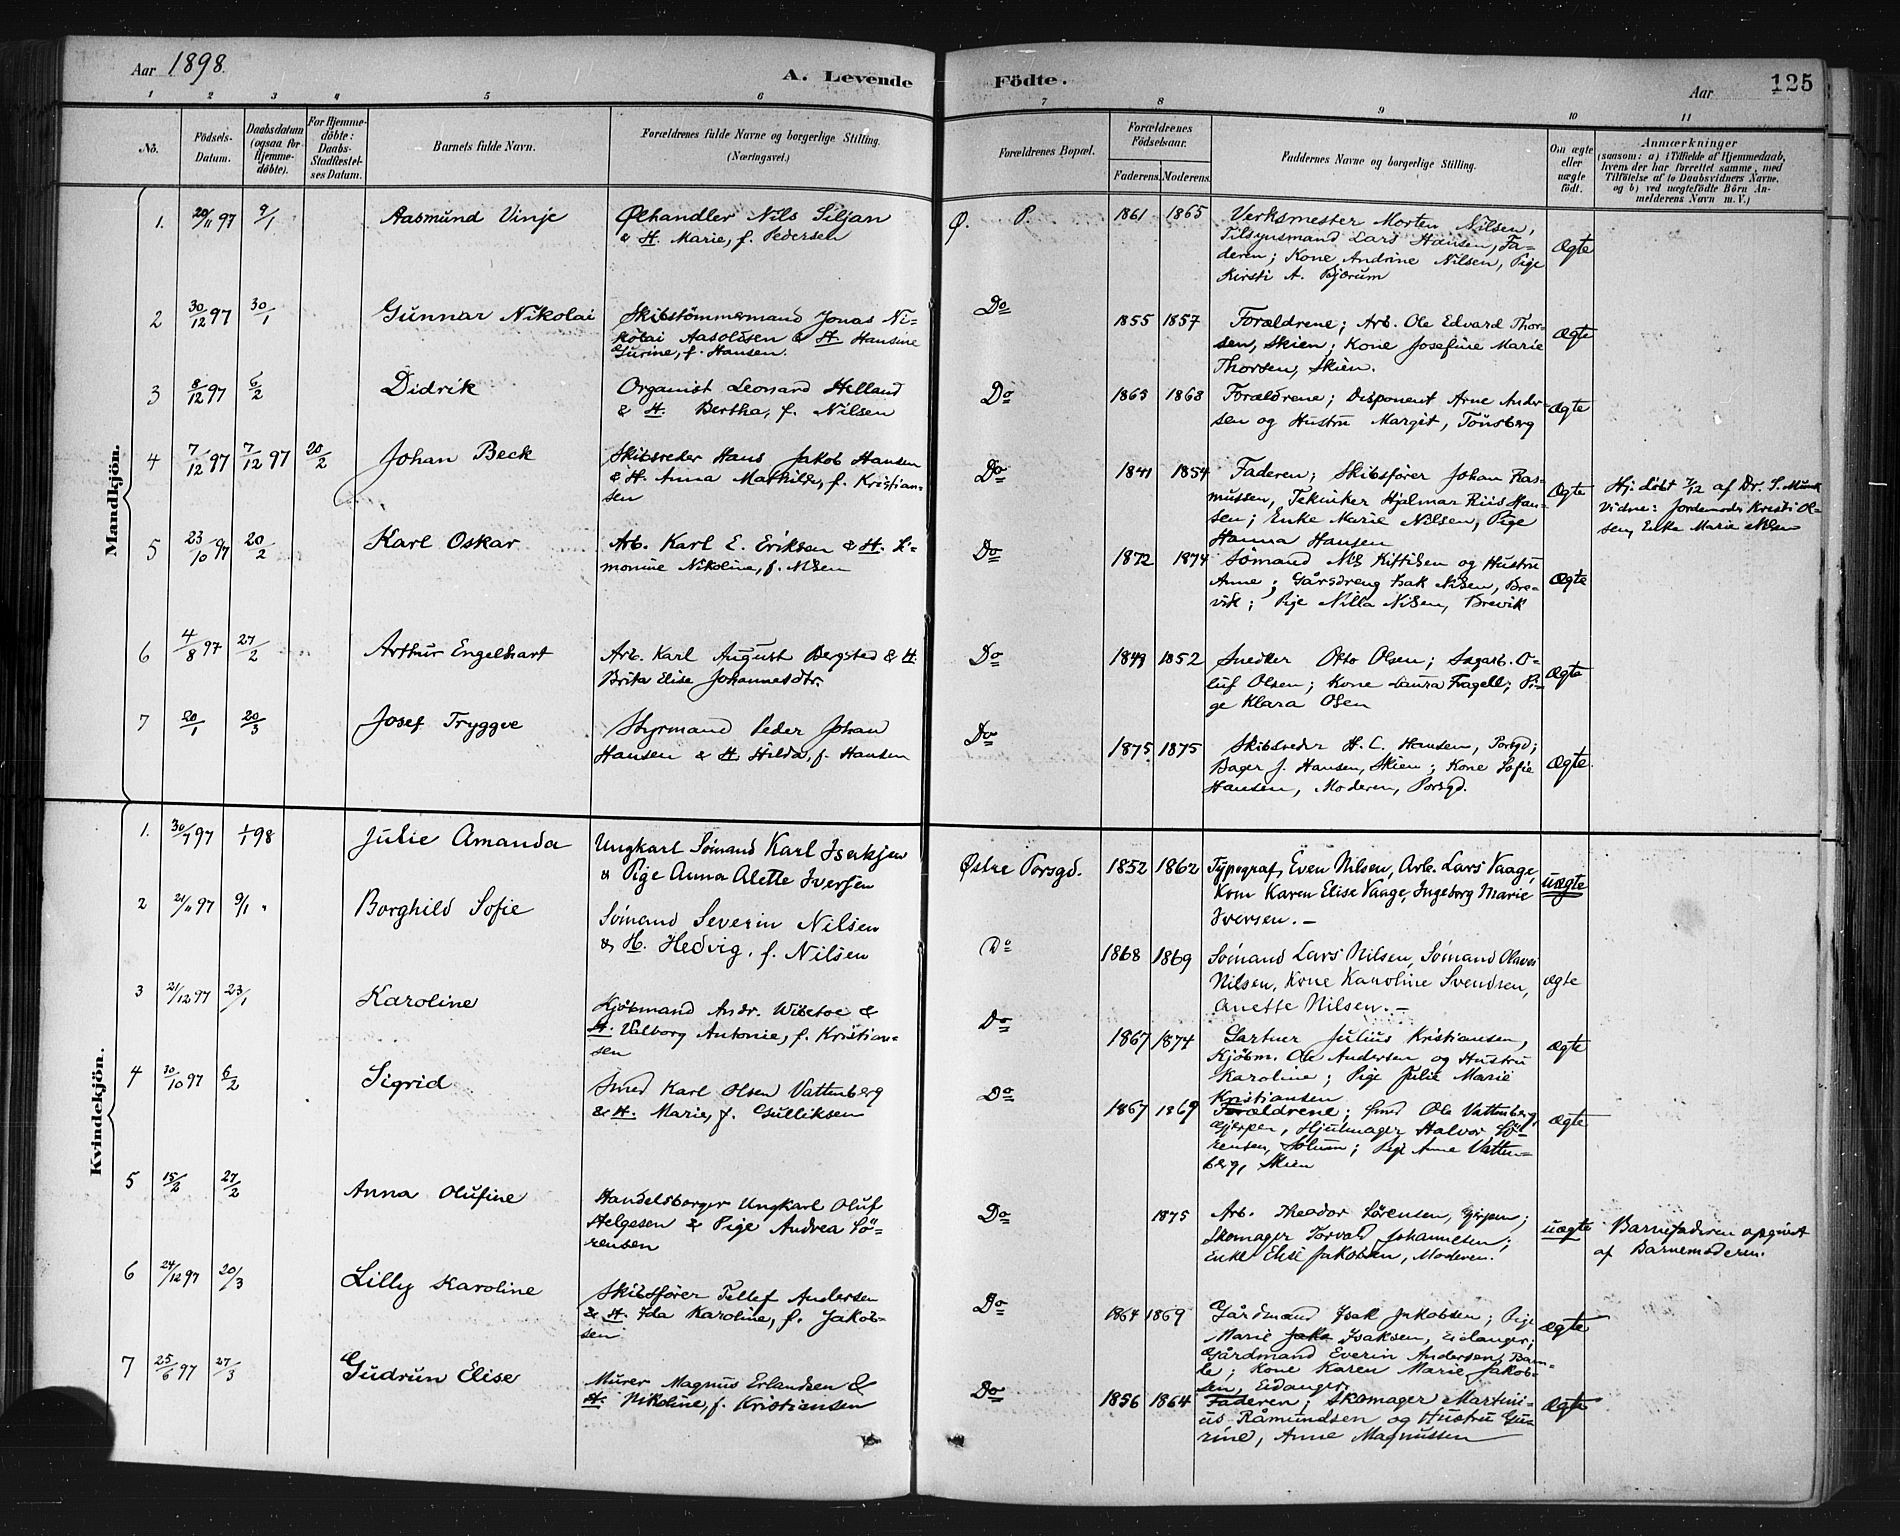 Aar 1898.
A. Levende Födte.
Aar
125
1 2 3 4 5 6 7 8 9 10 11
No.
Födsels-Datum.
Daabsdatum (ogsaa for Hjemme-döbte).
For Hjemme-döbte: Daabs-Stadfæstel-ses Datum.
Barnets fulde Navn.
Forældrenes fulde Navne og borgerlige Stilling.
(Næringsvei.)
Forældrenes Bopæl.
Forældrenes Födselsaar.
Faderens. Moderens.
Faddernes Navne og borgerlige Stilling.
Om ægte eller uægte födt.
Anmærkninger
(saasom: a) i Tilfælde af Hjemmedaab,
hvem der har forrettet samme, med
Tilföielse af to Daabsvidners Navne.
og b) ved uægtefödte Börn An-
melderens Navn m. V.)
Mandkjön.
1. 20/11 97 9/1 Aasmund Vinje
Ølhandler Nils Siljan
& H. Marie, f. Pedersen
Ø. P. 1861 1865
Verksmester Morten Nilsen,
Tilsynsmand Lars Hansen, Fa-
deren; Kone Andrine Nilsen, Pige
Kirsti A. Bjørum
Ægte
2 30/12 97 30/1 Gunnar Nikolai
Skibstömmermand Jonas Ni-
kolai Aasoldsen & H. Hansine
Gurine, f. Hansen.
Do 1855 1857
Forældrene; Arb. Ole Edvard Thor-
sen, Skien; Kone Josefine Marie
Thorsen, Skien.
Ægte
3 8/12 97 6/2 Didrik
Organist Leonard Helland
& H. Bertha, f. Nilsen
Do 1865 1868
Forældrene; Disponent Arne Ander-
sen og Hustru Margit, Tönsberg
Ægte
4 7/12 97 7/12 97 20/2 Johan Beck
Skibsreder Hans Jakob Hansen
& H. Anna Mathilde, f. Kristian-
sen
Do 1841 1854
Faderen; Skibsfører Johan Ras-
mussen, Tekniker Hjalmar Riis Han-
sen; Enke Marie Nilsen, Pige
Hanna Hansen
Ægte
Hj. döbt 7/12 af Dr. S. Munk
Vidne: Jordemoder Kristi Ol-
sen, Enke Marie Nilsen
5 23/10 97 20/2 Karl Oskar
Arb. Karl E. Eriksen & H. Si-
monine Nikoline, f. Nilsen
Do 1872 1874
Sömand Nils Kittilsen og Hustru
Anne; Gårdsdreng Isak Nilsen, Bre-
vik; Pige Nilla Nilsen, Brevik
Ægte
6 4/8 97 27/2 Arthur Engelhart
Arb. Karl August Bergsted & H.
Brita Elise Johannesdtr.
Do 1849 1852
Snedker Otto Olsen; Sagarb. O-
luf Olsen; Kone Laura Fragell; Pi-
ge Klara Olsen
Ægte
7 20/1 20/3 Josef Tryggve
Styrmand Peder Johan
Hansen & H. Hilda, f. Hansen
Do 1875 1875
Skibsreder H. C. Hansen, Porsgd;
Bager J. Hansen, Skien; Kone Sofie
Hansen, Moderen, Porsgd.
Ægte.
Kvindekjön.
1. 30/7 97 1/1 98 Julie Amanda
Ungkarl Sömand Karl Isaksen
& Pige Anna Alette Iversen
Østre Porsgd. 1852 1862
Typograf Even Nilsen, Arb. Lars Vaage,
Kone Karen Elise Vaage, Ingeborg Marie
Iversen. —
uægte
2 21/11 97 9/1 " Borghild Sofie
Sömand Severin Nilsen
& H. Hedvig, f. Nilsen
Do 1868 1869
Sömand Lars Nilsen, Sömand Olaves
Nilsen, Kone Karoline Svendsen,
Anette Nilsen. —
ægte
3 21/12 97 23/1 Karoline
Kjöbmand Andr. Wibetoe &
H. Valborg Antonie, f. Kristian-
sen
Do 1867 1874
Gartner Julius Kristiansen,
Kjöbm. Ole Andersen og Hustru
Karoline; Pige Julie Marie
Kristiansen
ægte
4 30/10 97 6/2 Sigrid
Smed Karl Olsen Vattenberg
& H. Marie, f. Gulliksen
Do 1867 1869
Forældrene; Smed Ole Vattenberg,
Gjerpen, Hjulmager Halvor Sö-
rensen, Solum; Pige Anne Vatten-
berg, Skien
ægte
5 15/2 27/2 Anna Olufine
Handelsborger Ungkarl Oluf
Helgesen & Pige Andrea Sö-
rensen
Do 1875
Arb. Theodor Sörensen, Gjerpen;
Skomager Torvald Johannesen;
Enke Elise Jakobsen, Moderen.
uægte
Barnefaderen opgivet
af Barnemoderen.
6 24/12 97 20/3 Lilly Karoline
Skibsförer Tellef Andersen
& H. Ida Karoline, f. Jakob-
sen
Do 1864 1869
Gårdmand Isak Jakobsen; Pige
Marie Jako Isaksen, Eidanger;
Gårdmand Everin Andersen, Bam-
le; Kone Karen Marie Jakob-
sen, Eidanger
ægte
7 25/6 97 27/3 Gudrun Elise
Murer Magnus Erlandsen &
H. Nikoline, f. Kristiansen
Do 1856 1864
Faderen; Skomager Martini-
us Råmundsen og Hustru Gu-
rine, Anne Magnussen
ægte